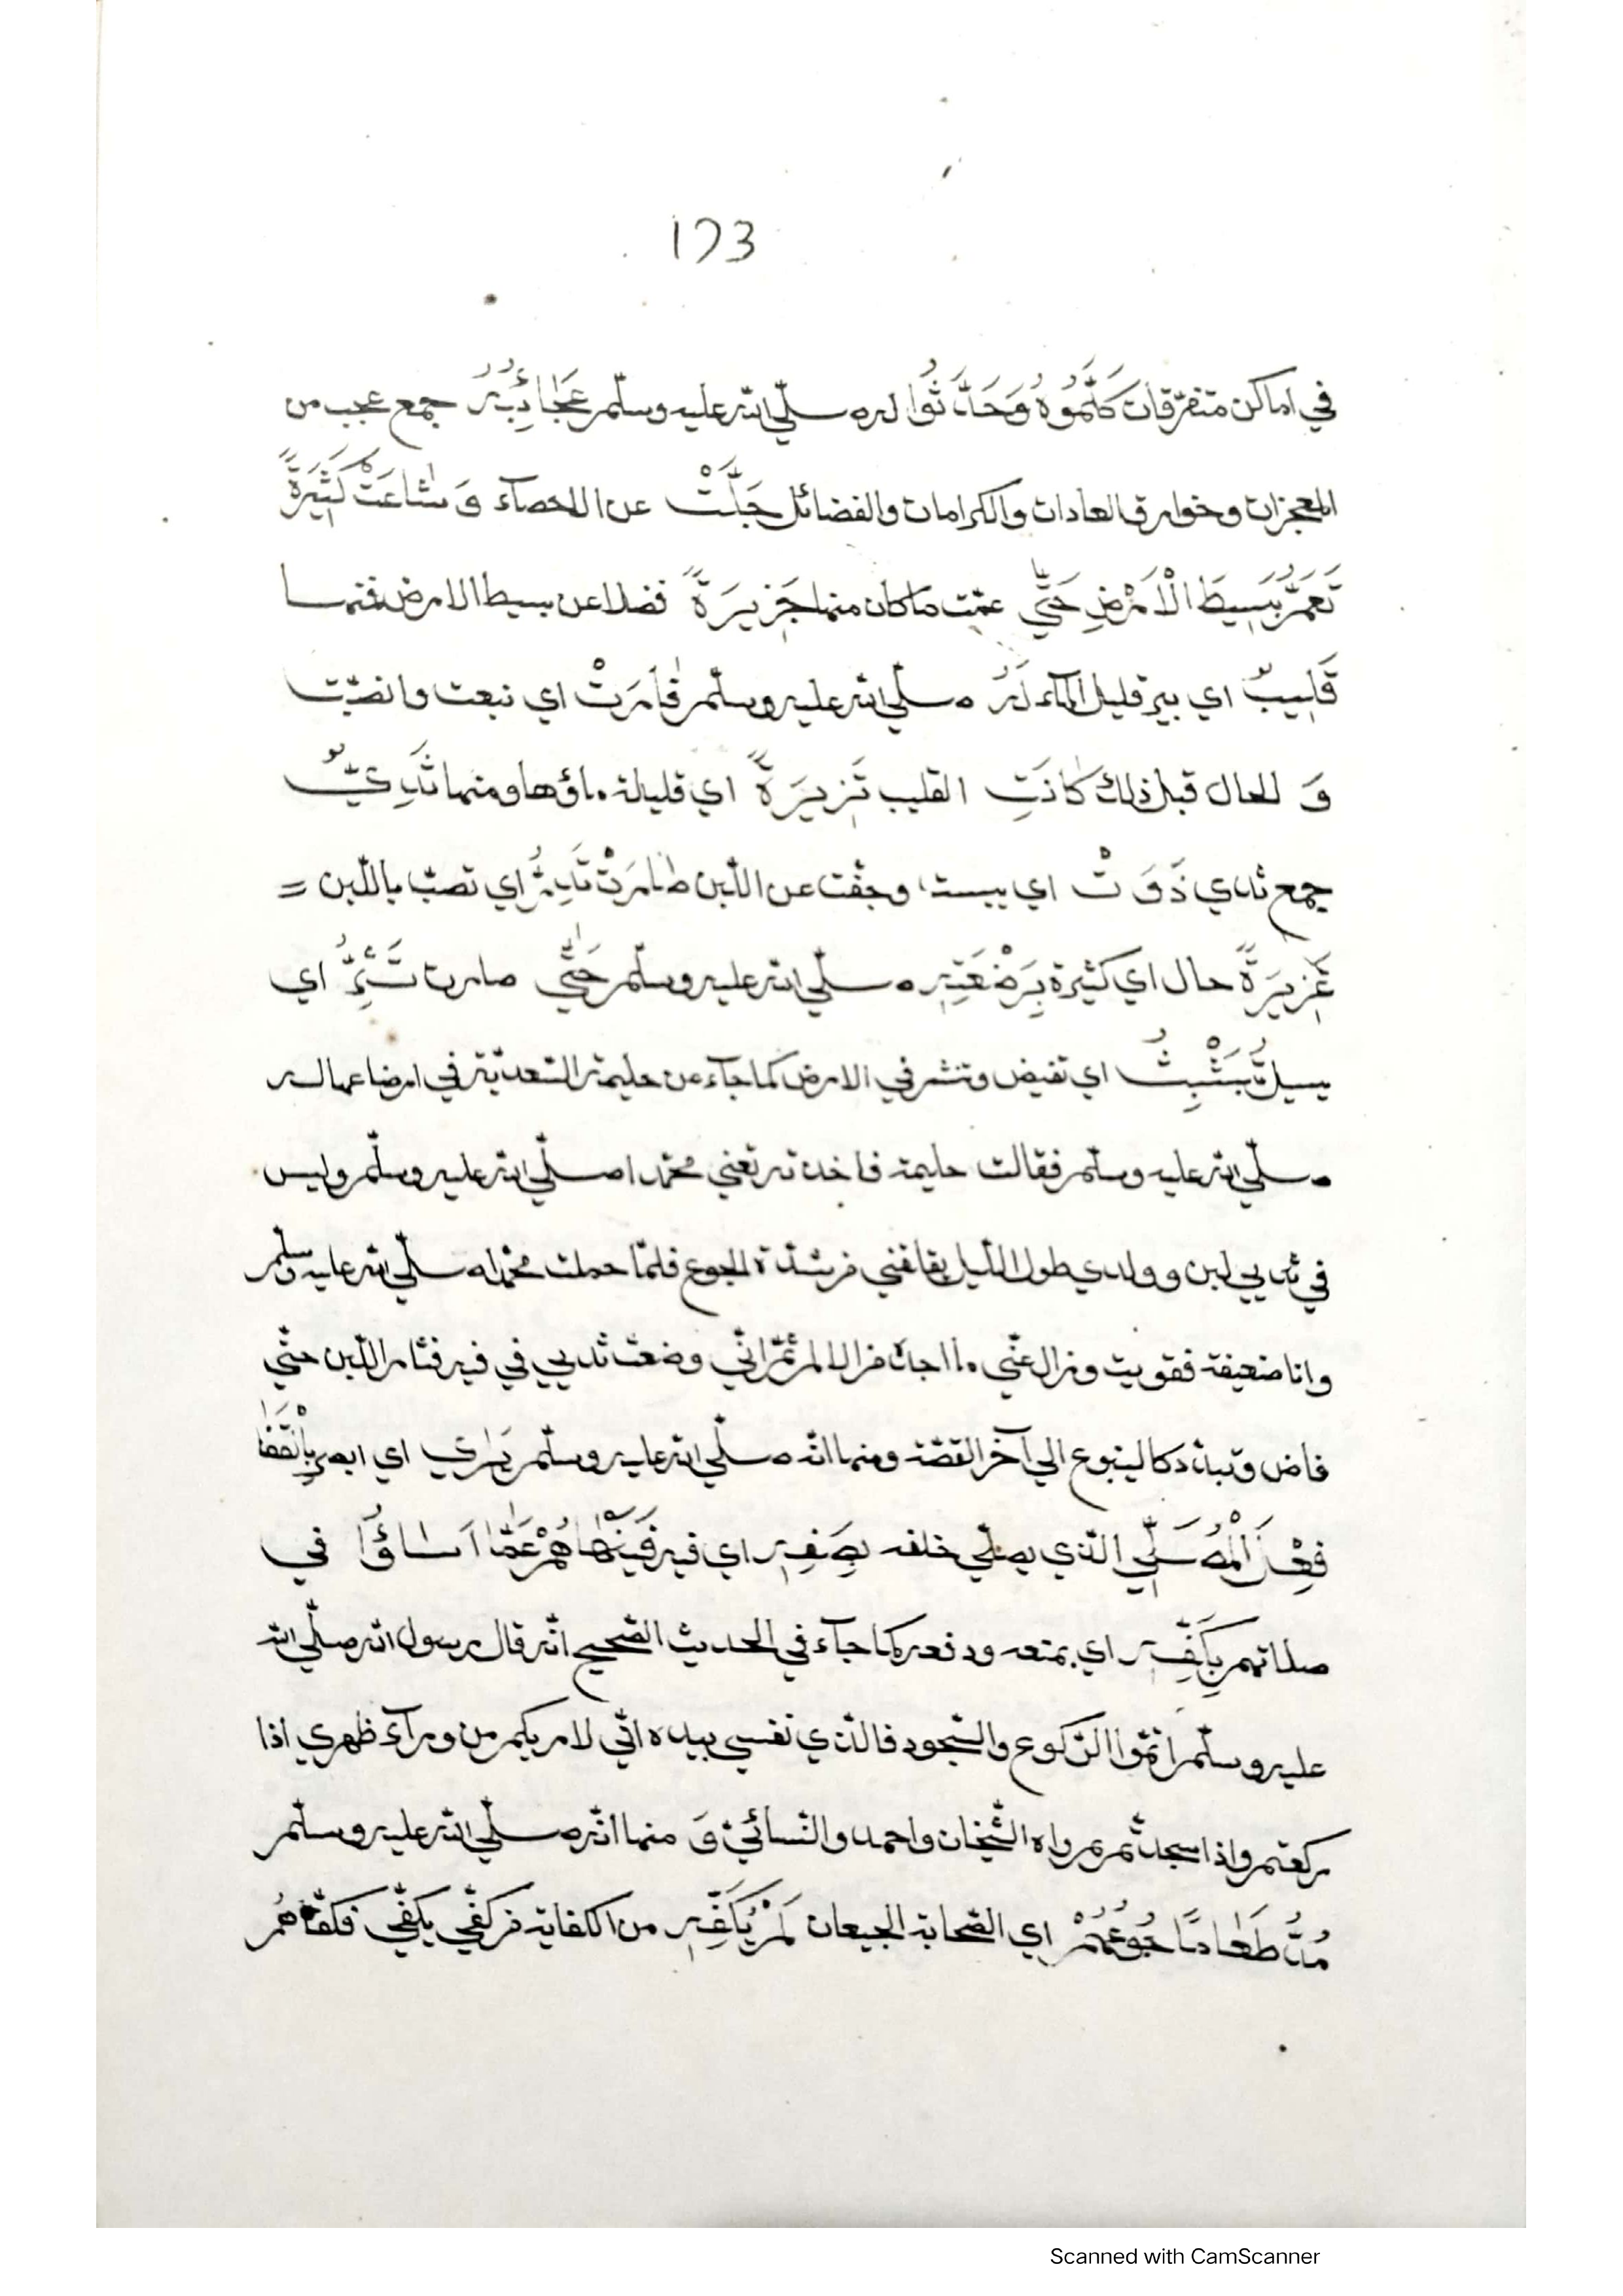 173
في اماكن متفرّقات كَلَّمُوهُ وَحَدَّثُوا له صلّي الله عليه وسلّم عَجَائِبُهُ جمع عجب من
المعجزات وخوارق العادات والكرامات والفضائل جَلَّتْ عن الاحصآء وَ شَاعَتْ كَثِيرَةً
تَعُمُّ بَسِيطَ الْأَرْضِ حَتَّي عمّت ما كان منها جَزِيرَةً فضلا عن بسيط الارض فمنها
قَلِيبٌ اي بير قليل المآء لَهُ صلّي الله عليه وسلّم فَارَتْ اي نبعت وانصبّت
وَ الحال قبل ذلك كَانَتِ القليب نَزِيرَةً اي قليلة ماؤها ومنها ثُدِيٌّ
جمع ثدي ذَوَتْ اي يبست وجفّت عن اللّبن صَارَتْ تَدِرُّ اي تصبّ باللّبن =
غَزِيرَةً حال اي كثيرة بِرَضْعَتِهِ صلّي الله عليه وسلّم حَتَّي صارت تَثِرُّ اي
يسيل اي تفيض وتنشر في الارض كما جآء عن حليمة السّعديّة في ارضاعها له
صلّي الله عليه وسلّم فقالت حليمة فاخدته تعني محمّدا صلّي الله عليه وسلّم وليس
في ثديي لبن وولدي طول اللّيل يقلقني من شدّة الجوع فلمّا حملت محمّدا صلّي الله عليه وسلّم
وانا ضعيفة فقويت وزال عنّي ما اجد من الالم ثمّ انّي وضعت ثديي في فيه فثار اللّبن حتّي
فاض وتبدّد كالينبوع الي آخر القصّة ومنها انّه صلّي الله عليه وسلّم يَرَي اي ابصر بِالْقَفَا
فِعْلَ الْمُصَلِّي الّذي يصلّي خلفه بِصَفِّهِ اي فيه فَيَنْهَاهُمْ عَمَّا اَسَاؤُا في
صلاتهم بِكَفِّهِ اي بمنعه ودفعه كما جآء في الحديث الصّحيح انّه قال رسول الله صلّي الله
عليه وسلّم اتمّوا الرّكوع والسّجود فالّذي نفسي بيده انّي لاريكم من ورآء ظهري اذا
ركعتم واذا سجدتم رواه الشّيخان واحمد والنّسائيّ وَ منها انّه صلّي الله عليه وسلّم
مُدُّ طَعَامًا جُوَّعُهُمْ اي الصّحابة الجيعان لَمْ يَكْفِهِ من الكفاية من كفّي يكفّي فكفّاهُم